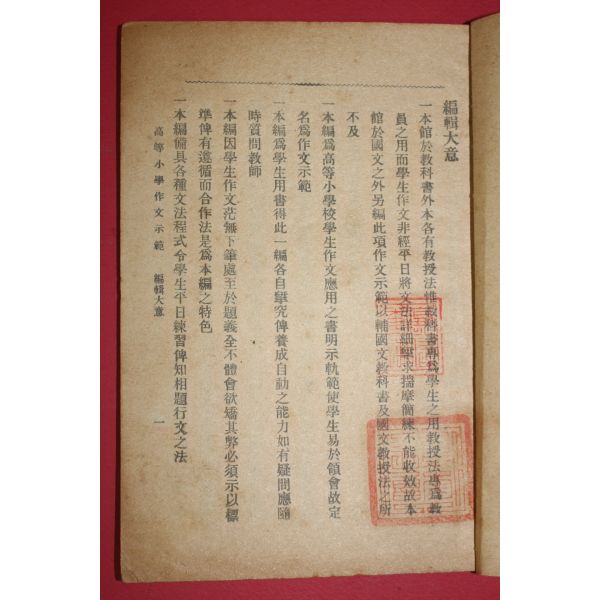 編輯大意
一本館於教科書外本各有教授法惟教科書專爲學生之用教授法專爲教
員之用而學生作文非經平日將文法詳細研求揣摩簡練不能收效故本
館於國文之外另編此項作文示範以輔國文教科書及國文教授法之所
不及
一本編爲高等小學校學生作文應用之書明示軌範使學生易於領會故定
名爲作文示範
一本編爲學生用書得此一編各自擘究俾養成自動之能力如有疑問應隨
時質問教師
一本編因學生作文茫無下筆處至於題義全不體會欲矯其弊必須示以標
準俾有遵循而合作法是爲本編之特色
一本編備具各種文法程式令學生平日練習俾知相題行文之法
高等小學作文示範 編輯大意 一